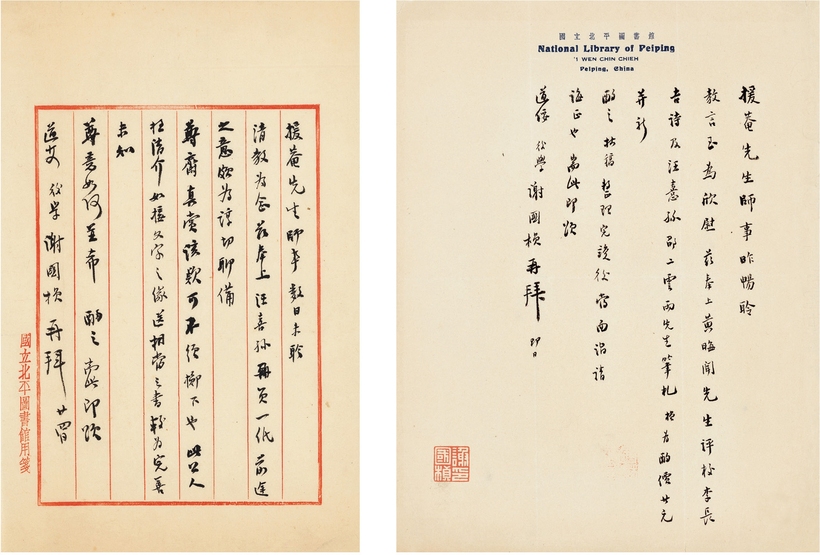 援菴先生師事數日未聆
清教為念茲奉上汪喜孫冊頁一紙前途
之意頗為諄切聊備
尊齋真賞該款可不須擲下也 此公人
極清介如援久字之緣送相當之書較為完善
未知
尊意如何並希 酌之 耑此即頌
道安 後學 謝國楨 再拜 廿四日
國立北平圖書館用箋
國立北平圖書館
National Library of Peiping
'1 WEN CHIN CHIEH
Peiping, China
援菴先生師事昨暢聆
教言至為欣慰 茲奉上黃晦聞先生評校李長
吉詩及汪憙孫邵二雲兩先生筆札 酌償廿元
並祈
酌之 拙稿整理完竣後當面詣請
誨正也 耑此即頌
道綏 後學 謝國楨 再拜 即日
謝印國楨